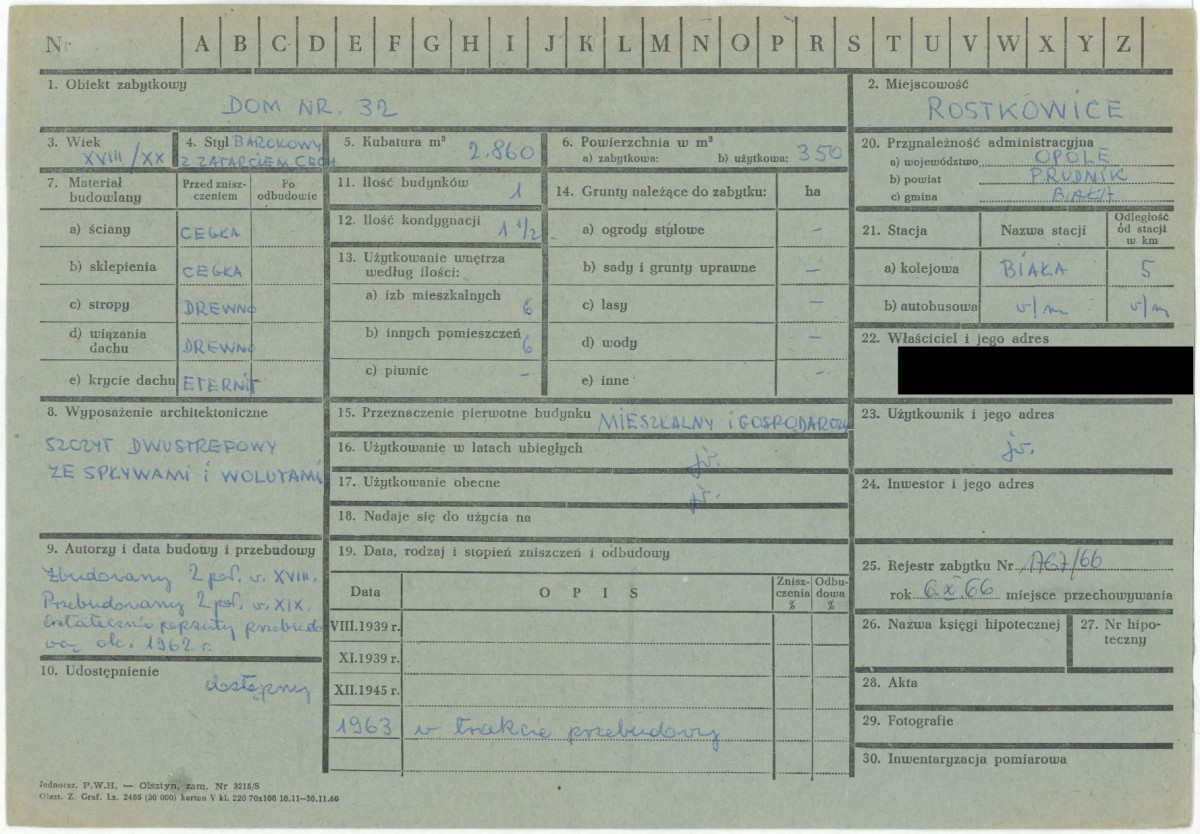 Nr A B C D E F G H I J K L M N O P R S T U V W X Y Z
1. Obiekt zabytkowy
DOM NR. 32
2. Miejscowość
ROSTKOWICE
3. Wiek
XVIII/XX
4. Styl BAROKOWY
Z ZATARCIEM CECH
5. Kubatura m³ 2.860
6. Powierzchnia w m²
a) zabytkowa: b) użytkowa: 350
20. Przynależność administracyjna
a) województwo OPOLE
b) powiat PRUDNIK
c) gmina BIAŁA
7. Materiał budowlany
Przed znisz-
czeniem
Po
odbudowie
a) ściany CEGŁA
b) sklepienia CEGŁA
c) stropy DREWNO
d) wiązania
dachu DREWNO
e) krycie dachu ETERNIT
11. Ilość budynków 1
12. Ilość kondygnacji 1 1/2
13. Użytkowanie wnętrza
według ilości:
a) izb mieszkalnych 6
b) innych pomieszczeń 6
c) piwnic -
14. Grunty należące do zabytku: ha
a) ogrody stylowe -
b) sady i grunty uprawne -
c) lasy -
d) wody -
e) inne -
21. Stacja Nazwa stacji
Odległość
od stacji
w km
a) kolejowa BIAŁA 5
b) autobusowa v/m v/m
22. Właściciel i jego adres
8. Wyposażenie architektoniczne
SZCZYT DWUSTREFOWY
ZE SPŁYWAMI i WOLUTAMI
15. Przeznaczenie pierwotne budynku MIESZKALNY i GOSPODARCZY
16. Użytkowanie w latach ubiegłych jw.
17. Użytkowanie obecne jw.
18. Nadaje się do użycia na
23. Użytkownik i jego adres
jw.
24. Inwestor i jego adres
9. Autorzy i data budowy i przebudowy
Zbudowany 2 poł. w. XVIII.
Przebudowany 2 poł. w. XIX.
Ostatecznie popsuty przebudo
wą ok. 1962 r.
10. Udostępnienie
dostępny
19. Data, rodzaj i stopień zniszczeń i odbudowy
Data OPIS
Znisz-
czenia
%
Odbu-
dowa
%
VIII.1939 r.
XI.1939 r.
XII.1945 r.
1963 w trakcie przebudowy
25. Rejestr zabytku Nr 1767/66
rok 6.X.66 miejsce przechowywania
26. Nazwa księgi hipotecznej
27. Nr hipo-
teczny
28. Akta
29. Fotografie
30. Inwentaryzacja pomiarowa
Jednoraz. P.W.H. — Olsztyn, zam. Nr 3215/S
Olszt. Z. Graf. Lz. 2485 (30 000) karton V kl. 220 70x100 10.11—30.11.60